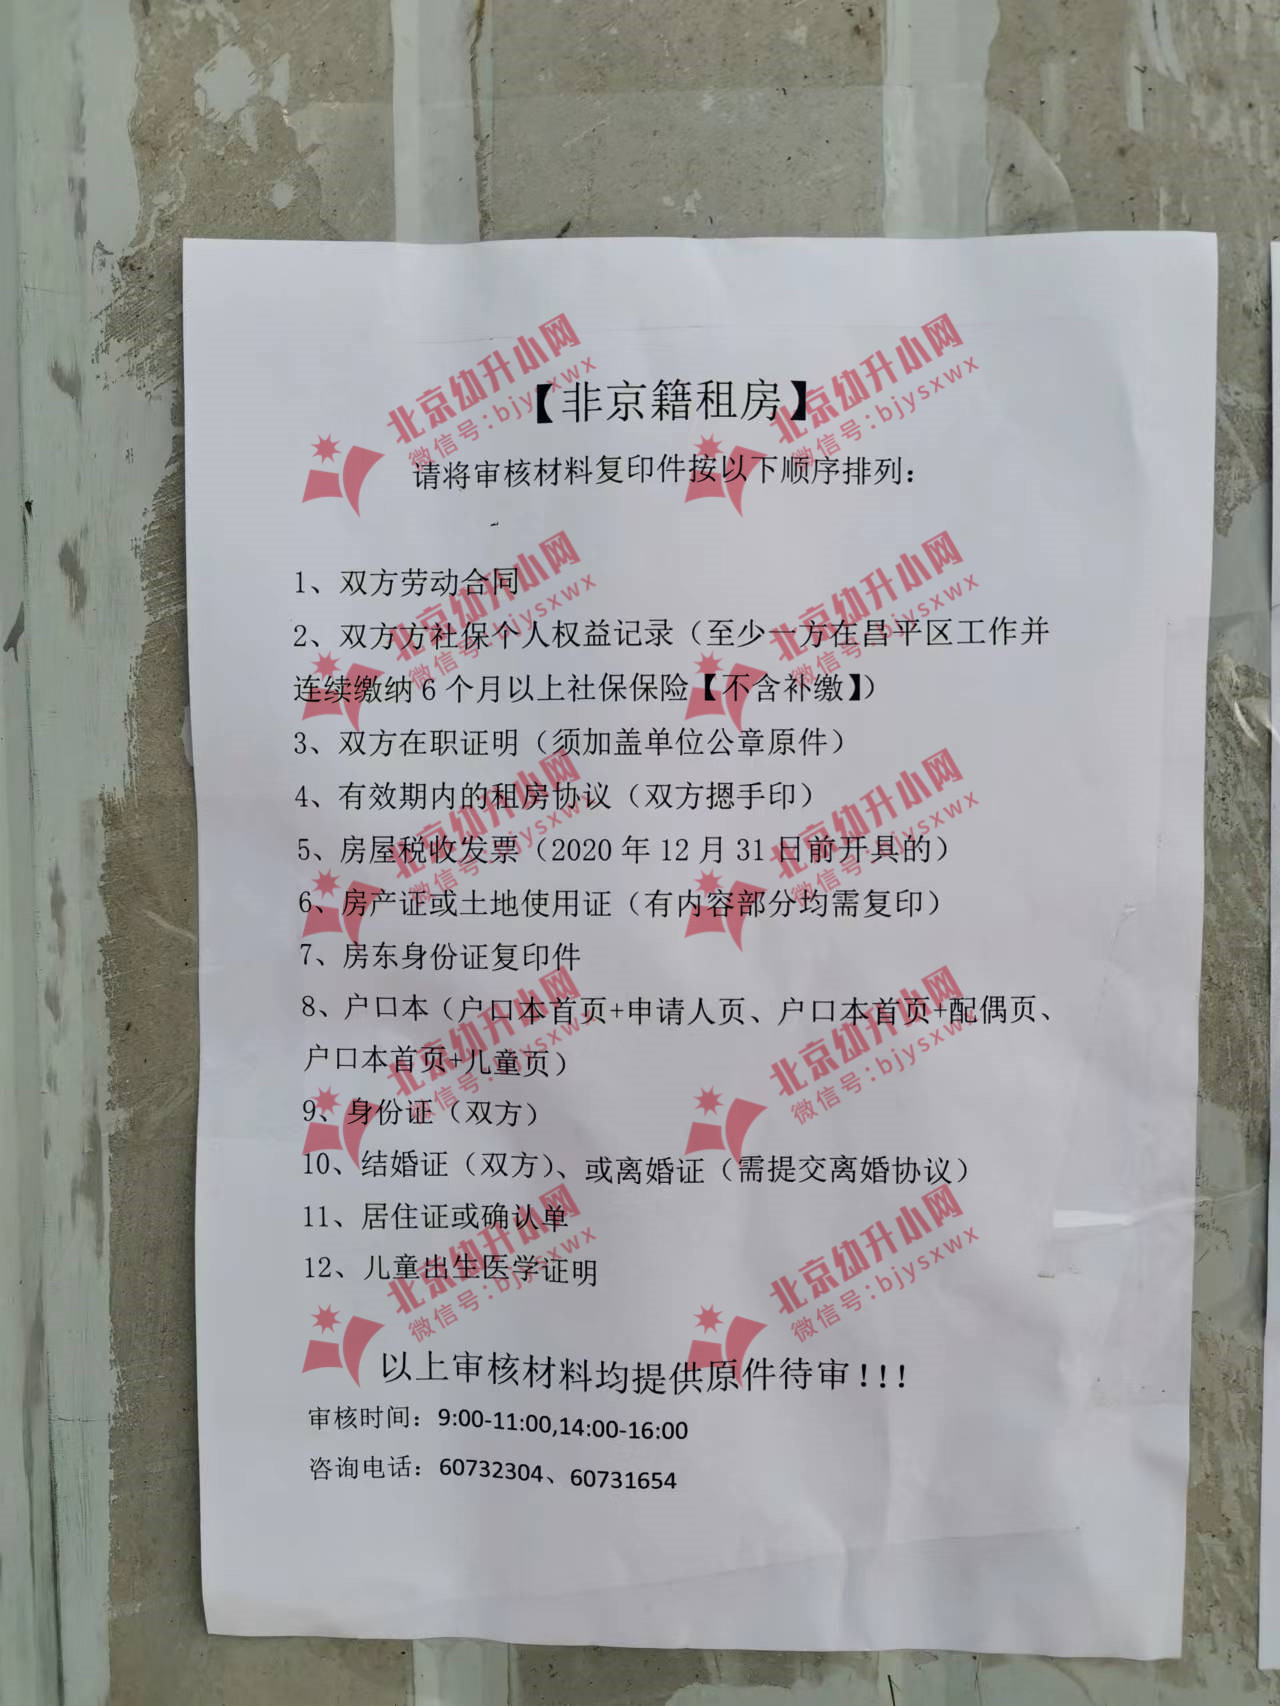 【非京籍租房】
请将审核材料复印件按以下顺序排列：
1、双方劳动合同
2、双方方社保个人权益记录（至少一方在昌平区工作并
连续缴纳6个月以上社保保险【不含补缴】）
3、双方在职证明（须加盖单位公章原件）
4、有效期内的租房协议（双方摁手印）
5、房屋税收发票（2020年12月31日前开具的）
6、房产证或土地使用证（有内容部分均需复印）
7、房东身份证复印件
8、户口本（户口本首页+申请人页、户口本首页+配偶页、
户口本首页+儿童页）
9、身份证（双方）
10、结婚证（双方）、或离婚证（需提交离婚协议）
11、居住证或确认单
12、儿童出生医学证明
以上审核材料均提供原件待审!!!
审核时间：9:00-11:00,14:00-16:00
咨询电话：60732304、60731654
北京幼升小网
微信号:bjysxwx
北京幼升小网
微信号:bjysxwx
北京幼升小网
微信号:bjysxwx
北京幼升小网
微信号:bjysxwx
北京幼升小网
微信号:bjysxwx
北京幼升小网
微信号:bjysxwx
北京幼升小网
微信号:bjysxwx
北京幼升小网
微信号:bjysxwx
北京幼升小网
微信号:bjysxwx
北京幼升小网
微信号:bjysxwx